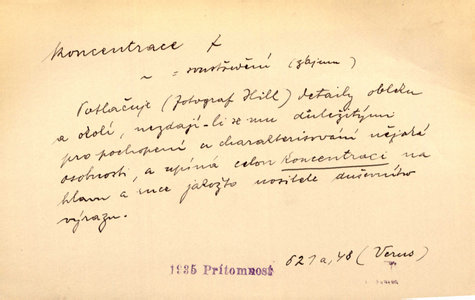 koncentrace f
~ = soustředění (zájmu)
Potlačuje (fotograf Hill) detaily obleku
a okolí, nezdají-li se mu důležitými
pro pochopení a charakterisování nějaké
osobnosti, a upíná celou koncentraci na
hlavu a ruce jakožto nositele duševního
výrazu.
1935 Přítomnost 621a,48 (Verus)